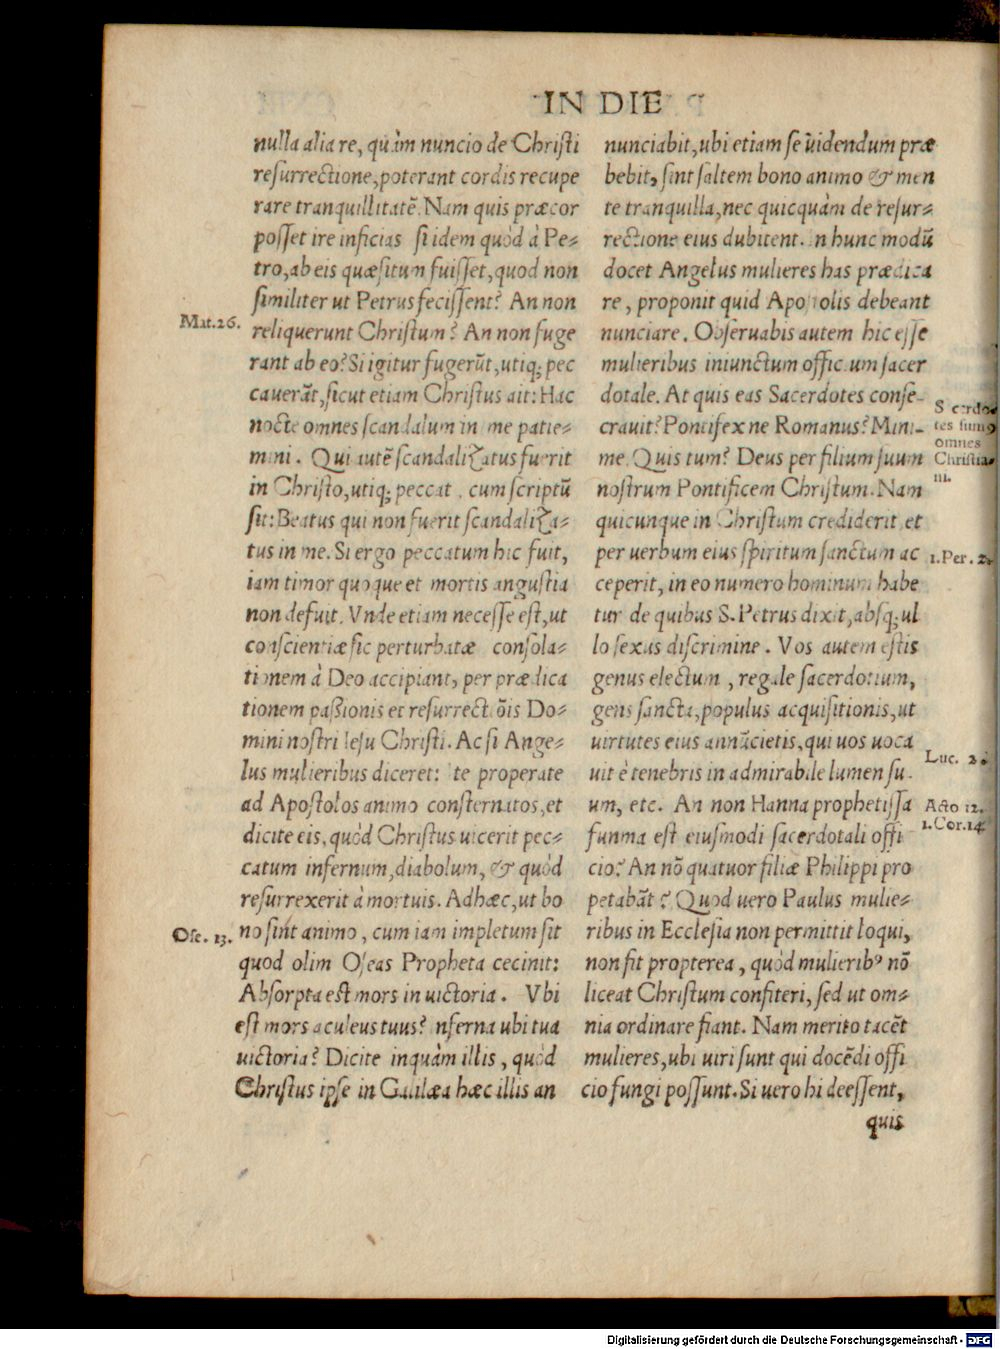 IN DIE
nulla alia re, quàm nuncio de Christi
resurrectione, poterant cordis recupe
rare tranquillitatē. Nam quis præcor
posset ire inficias si idem quòd à Pe-
tro, ab eis quæsitum fuisset, quod non
similiter ut Petrus fecissent? An non
Mat. 26.
reliquerunt Christum? An non fuge
rant ab eo? Si igitur fugerūt, utiq; pec
cauerāt, sicut etiam Christus ait: Hac
nocte omnes scandalum in me patie-
mini. Qui autē scandalizatus fuerit
in Christo, utiq; peccat, cum scriptū
sit: Beatus qui non fuerit scandaliza-
tus in me. Si ergo peccatum hic fuit,
iam timor quoque et mortis angustia
non defuit. Vnde etiam necesse est, ut
conscientiæ sic perturbatæ consola-
tionem à Deo accipiant, per prædica
tionem paßionis et resurrectiōis Do-
mini nostri Iesu Christi. Ac si Ange-
lus mulieribus diceret: te properate
ad Apostolos animo consternatos, et
dicite eis, quòd Christus uicerit pec-
catum infernum, diabolum, & quòd
resurrexerit à mortuis. Adhæc, ut bo
Ose. 13.
no sint animo, cum iam impletum sit
quod olim Oseas Propheta cecinit:
Absorpta est mors in uictoria. Vbi
est mors aculeus tuus? nferna ubi tua
uictoria? Dicite inquàm illis, quòd
Christus ipse in Galilæa hæc illis an
nunciabit, ubi etiam se uidendum præ
bebit, sint saltem bono animo & men
te tranquilla, nec quicquàm de resur-
rectione eius dubitent. n hunc modū
docet Angelus mulieres has prædica
re, proponit quid Apostolis debeant
nunciare. Obseruabis autem hic esse
mulieribus iniunctum officium sacer
dotale. At quis eas Sacerdotes conse-
crauit? Pontifex ne Romanus? Mini-
me. Quis tum? Deus per filium suum
nostrum Pontificem Christum. Nam
quicunque in Christum crediderit et
per uerbum eius spiritum sanctum ac
ceperit, in eo numero hominum habe
tur de quibus S. Petrus dixit, absq; ul
lo sexus discrimine. Vos autem estis
genus electum, regale sacerdotium,
gens sancta, populus acquisitionis, ut
uirtutes eius annūcietis, qui uos uoca
uit è tenebris in admirabile lumen su-
um, etc. An non Hanna prophetissa
funma est eiusmodi sacerdotali offi
cio? An nō quatuor filiæ Philippi pro
petabāt? Quod uero Paulus mulie-
ribus in Ecclesia non permittit loqui,
non fit propterea, quòd mulierib⁹ nō
liceat Christum confiteri, sed ut om-
nia ordinare fiant. Nam merito tacēt
mulieres, ubi uiri sunt qui docēdi offi
cio fungi possunt. Si uero hi deessent,
quis
Sacerdo-
tes sumꝰ
omnes
Christia-
ni.
1. Per. 2.
Luc. 2.
Acto 12.
1. Cor. 14.
Digitalisierung gefördert durch die Deutsche Forschungsgemeinschaft - DFG